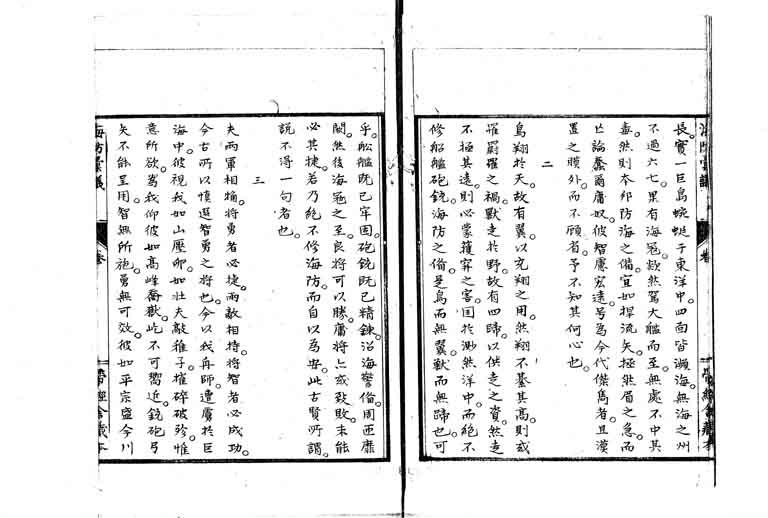 長實一巨島蜿蜒于東洋中四面皆瀕海無海之州
不過六七果有海寇欻然駕大艦而至無處不中其
毒然則本邦防海之備宜如捍流矢極然眉之急而
亡論蠢爾庸奴彼智慮宏遠号為今代傑雋者且漠
置之膜外而不顧省予不知其何心也
二
鳥翔於天故有翼以充翔之用然翔不綦其高則或
罹罻羅之禍獸走於野故有四蹄以供走之資然走
不極其遠則必蒙獲穽之害国於渺然洋中而絕不
修船艦砲銃海防之備是鳥而無翼獸而無蹄也可
乎舩艦既已牢固砲銃既已精鍊沿海警備周匝靡
闕然後海寇之至良將可以勝庸將亡或致敗未能
必其捷若乃絕不修海防而自以為安此古賢所謂
說不得一句者也
三
夫兩軍相搏將勇者必捷兩敵相持將智者必成功
今古所以慎選智勇之將也今以我舟師遭虜於巨
海中彼視我如山壓卵如壯夫毆稚子摧碎破殄惟
意所欲為我仰彼如高峰喬嶽屹不可嚮近銃砲弓
矢不能呈用智無所施勇無可效彼如平宗盛今川
海防彙議
卷